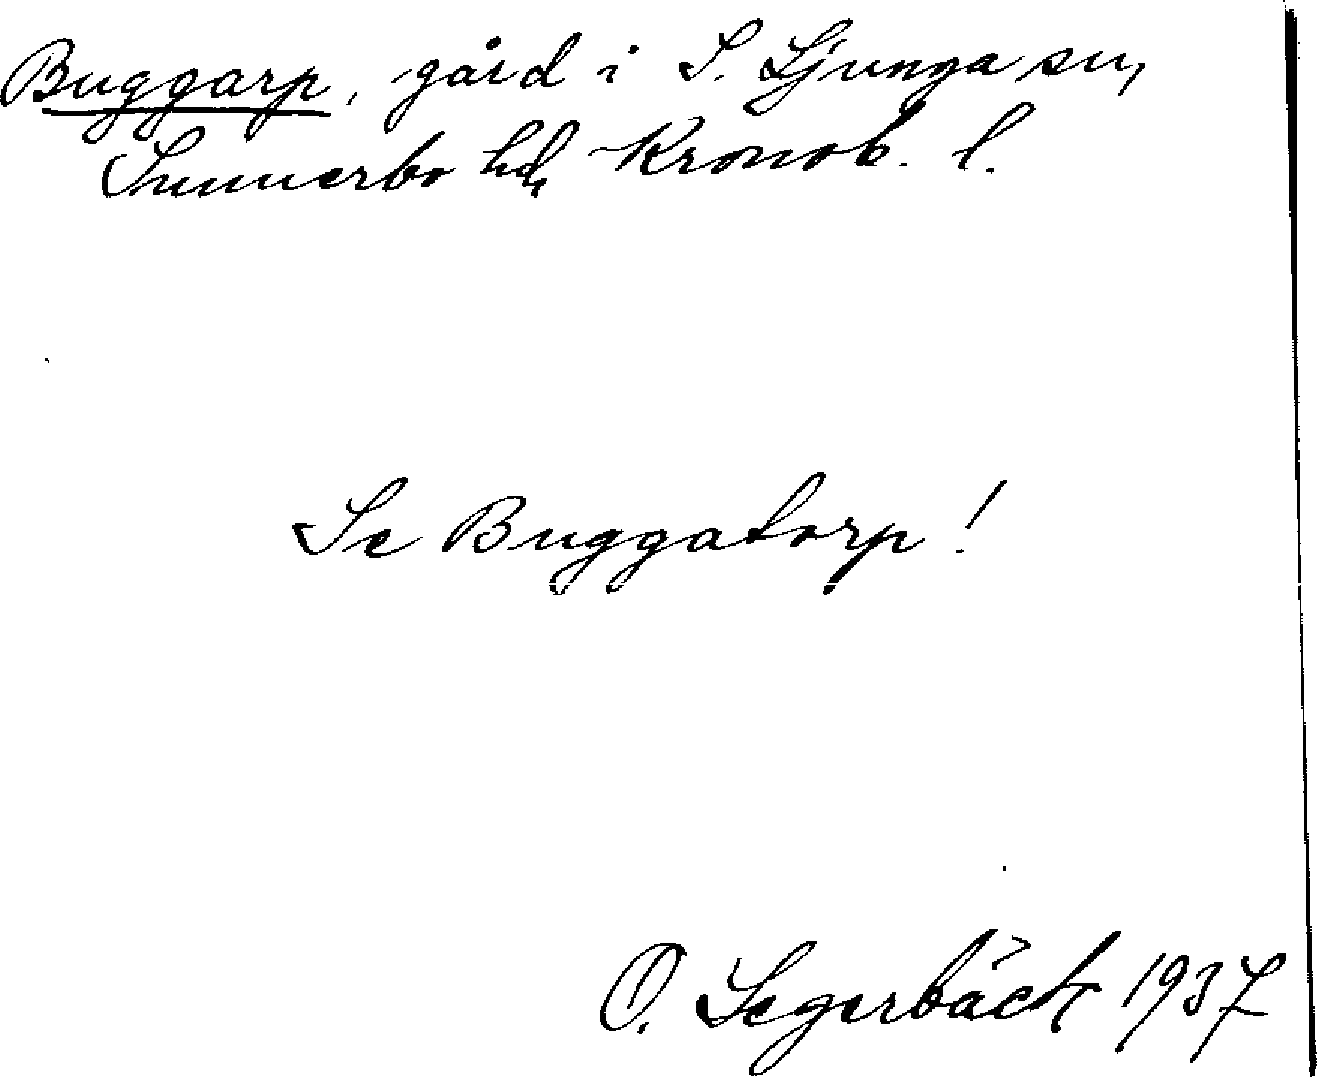 Buggarp, gård i S. Ljunga sn,
Sunnerbo hd, Kronob. l.
Se Buggatorp!
O. Segerbäck 1937